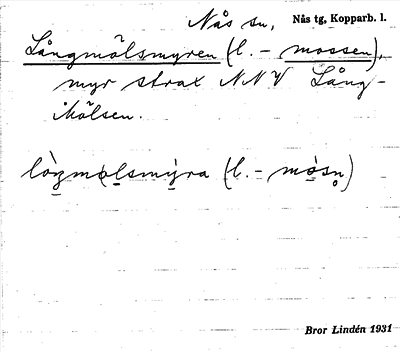 Nås sn, Nås tg, Kopparb. l.
Långmölsmyren (l. - mossen),
myr strax NNV Lång-
mölsen.
lòŋmo̯lsmy̱ra (l. - mò̱sn̥)
Bror Lindén 1931